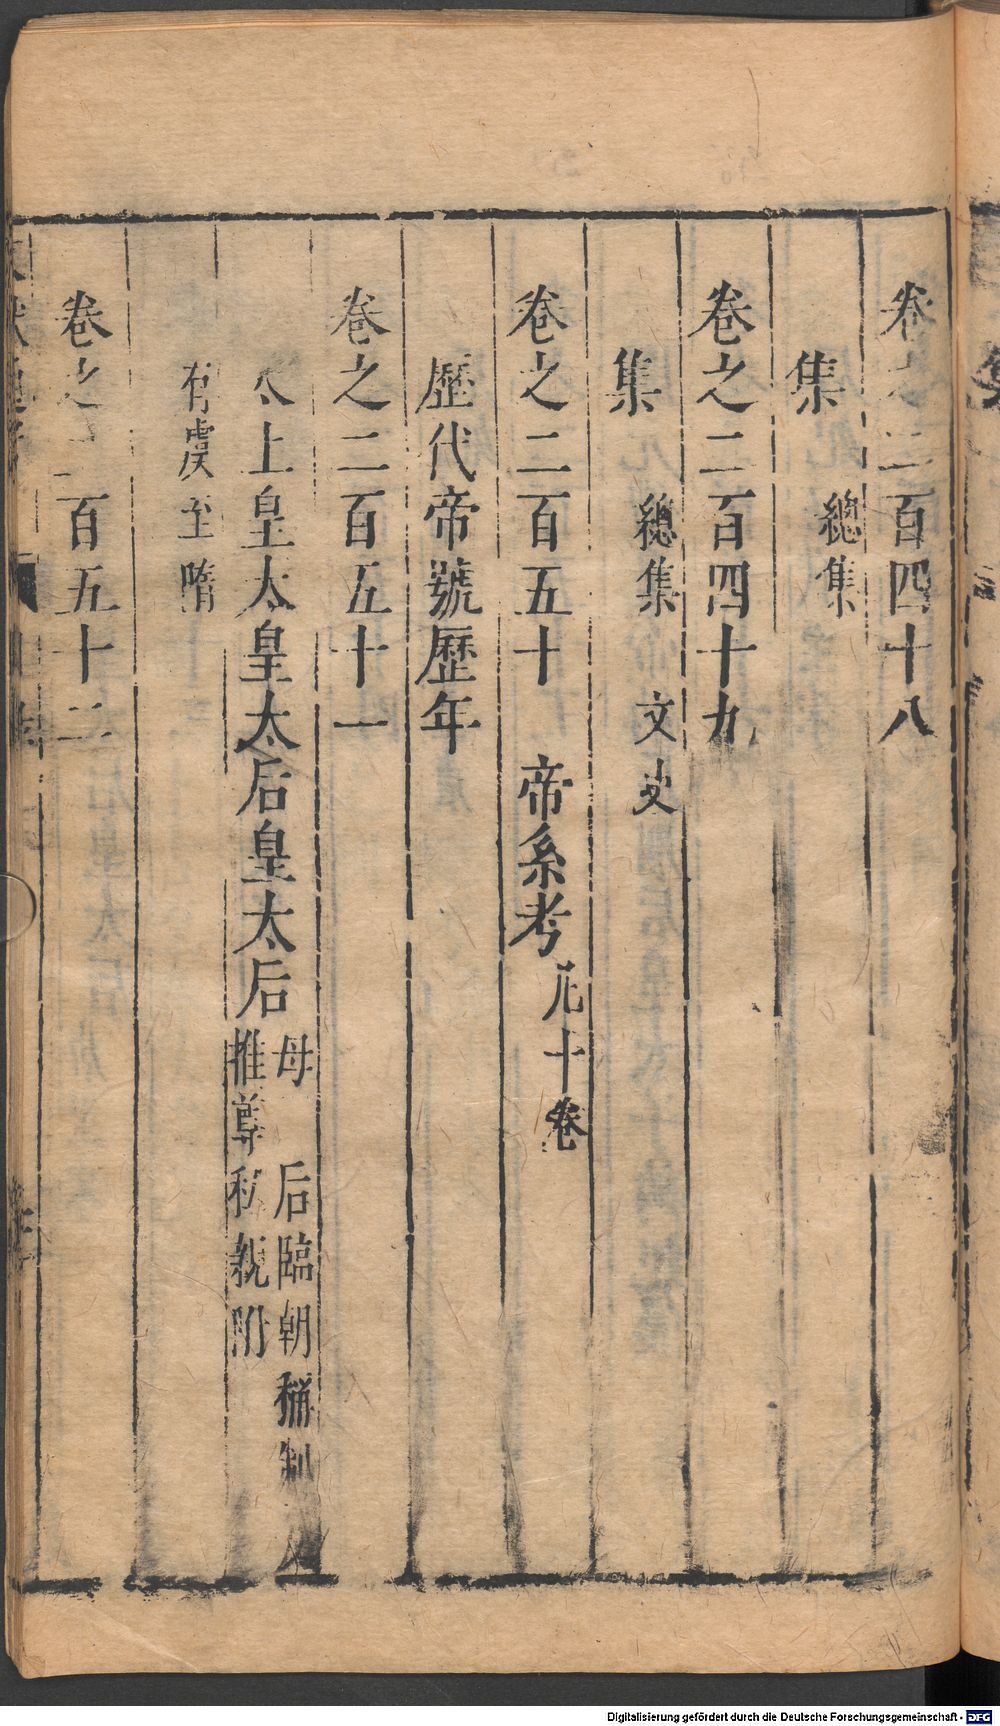 卷之二百四十八
集 總集
卷之二百四十九
集 總集 文史
卷之二百五十 帝系考 凡十卷
歷代帝號歷年
卷之二百五十一
太上皇太皇太后皇太后 母后臨朝稱制 推尊私親附
有虞至隋
卷之二百五十二
Digitalisierung gefördert durch die Deutsche Forschungsgemeinschaft - DFG